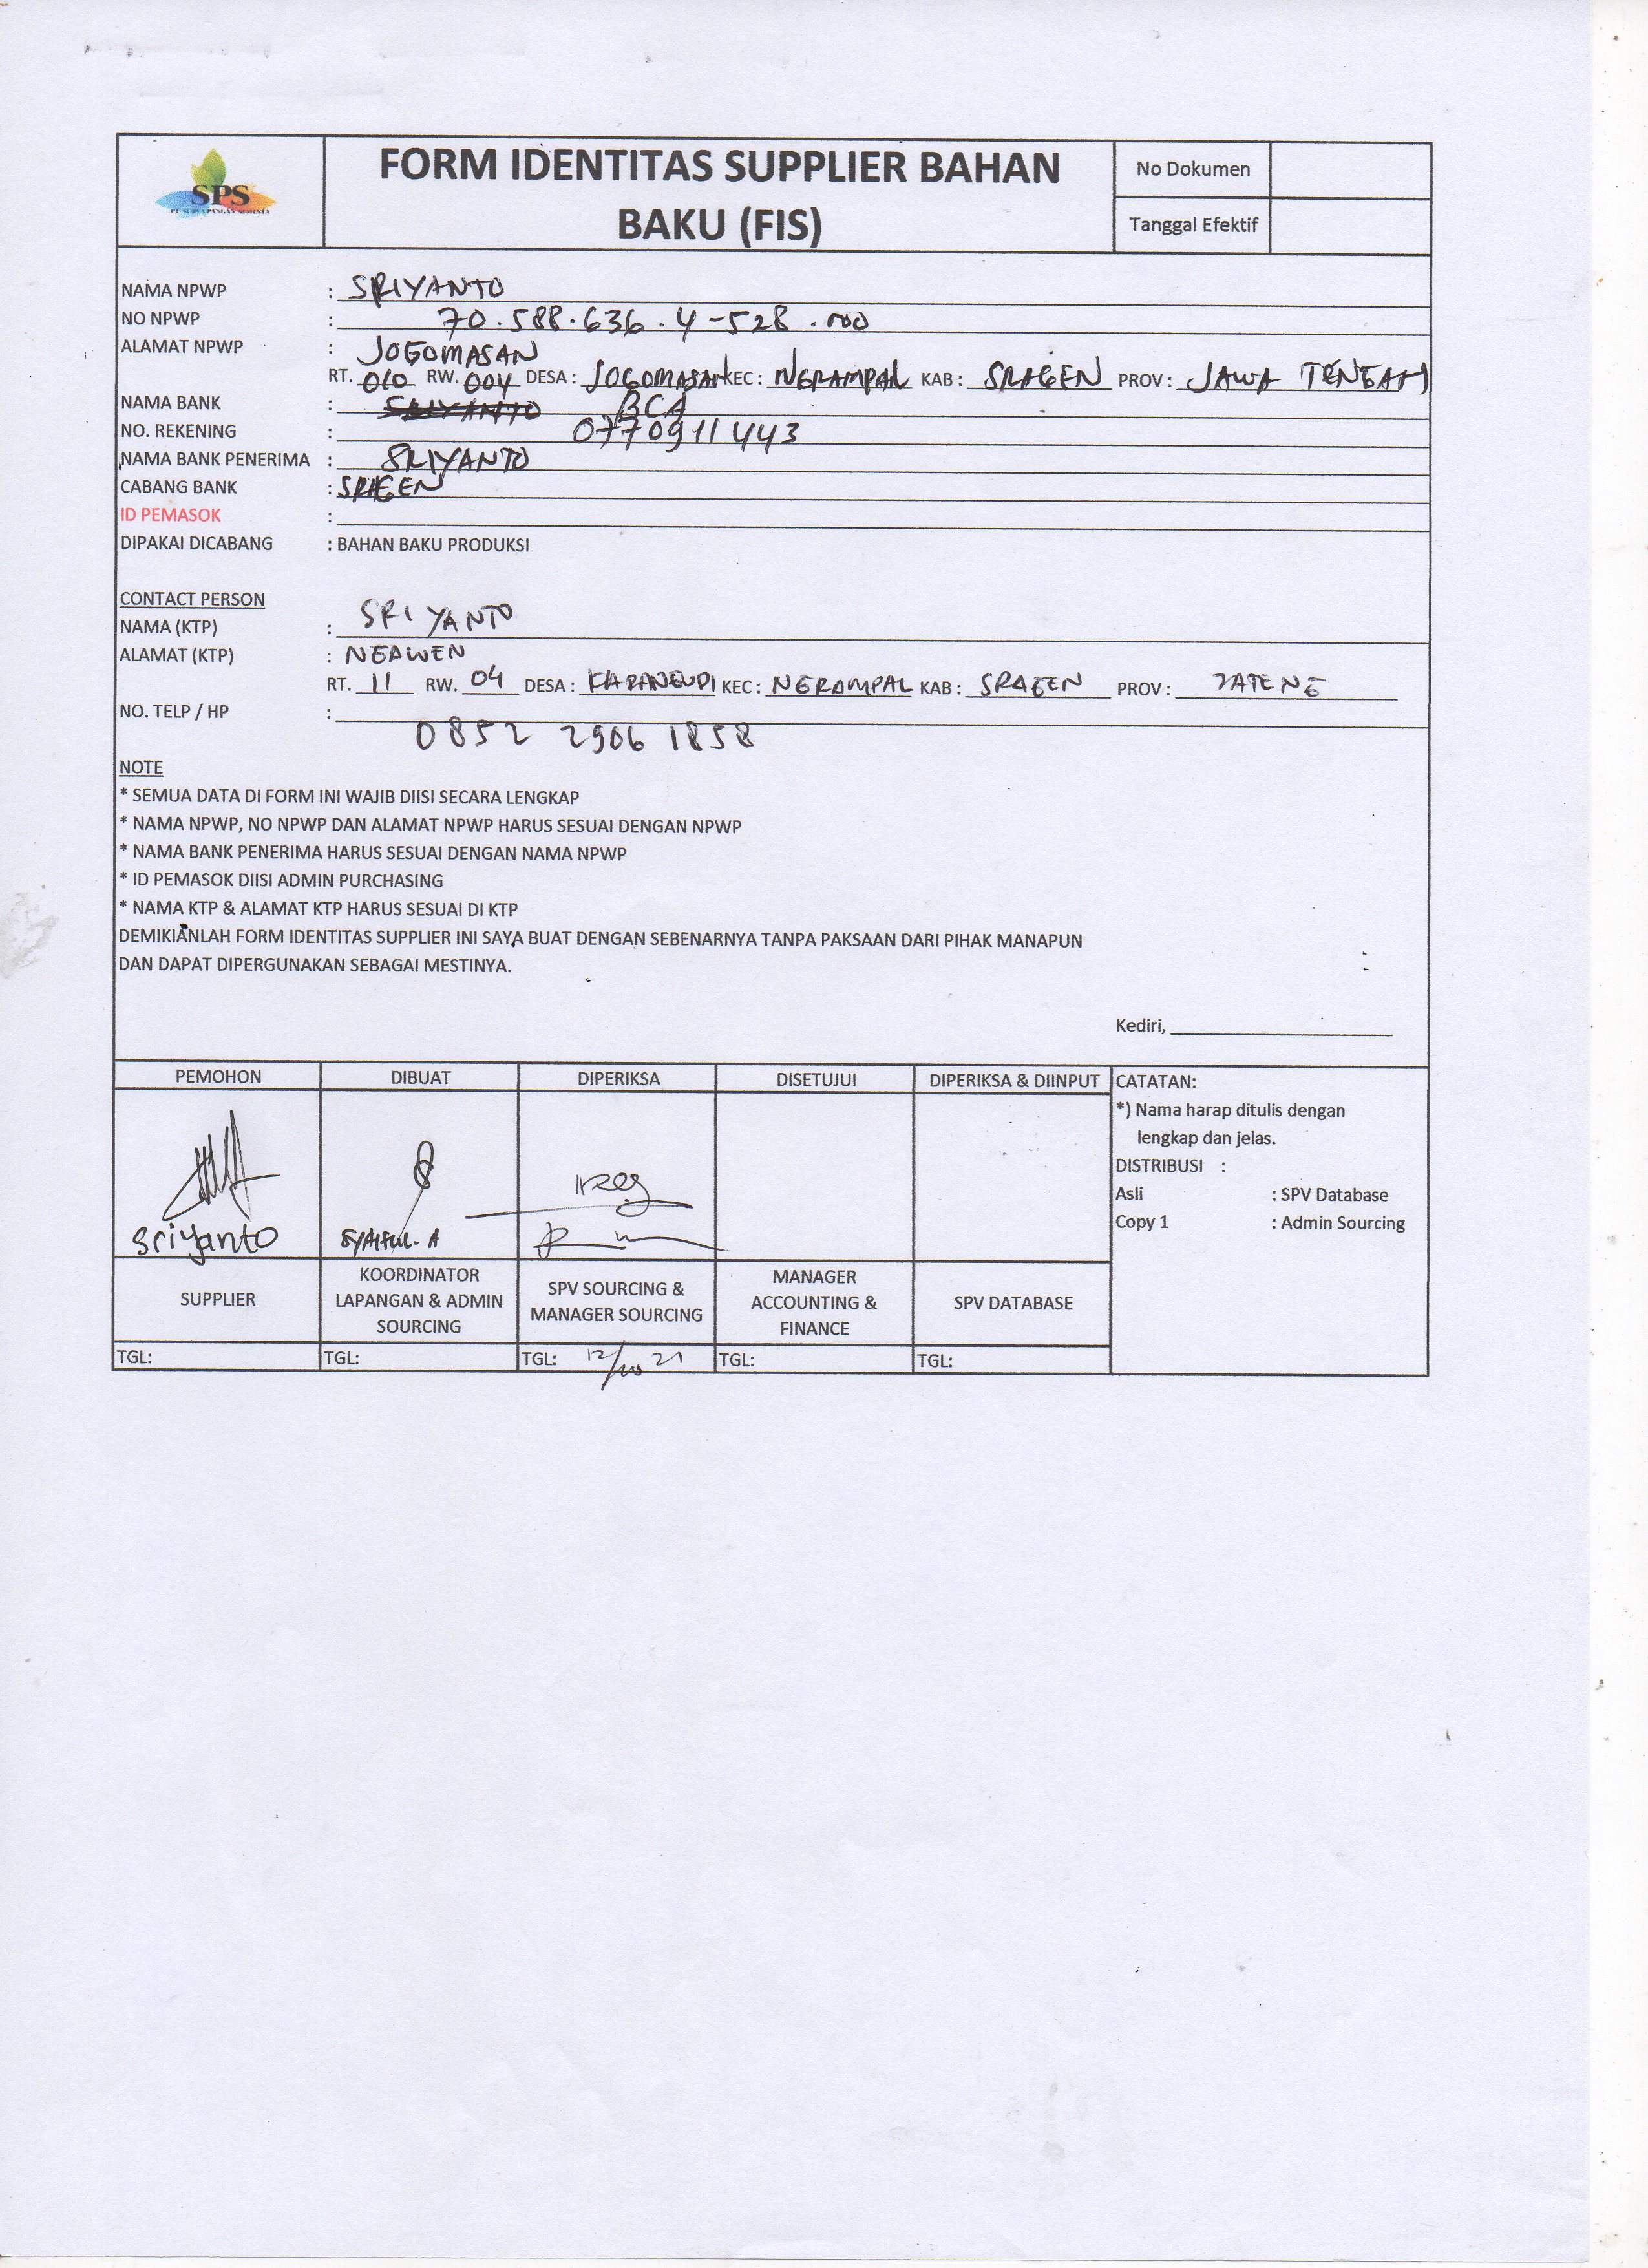 SPS
FORM IDENTITAS SUPPLIER BAHAN
BAKU (FIS)
No Dokumen
Tanggal Efektif
NAMA NPWP : SRIYANTO
NO NPWP : 70.588.636.4-528.000
ALAMAT NPWP : JOGOMASAN
RT. 010 RW. 004 DESA : JOGOMASAN KEC : NGRAMPAL KAB : SRAGEN PROV : JAWA TENGAH
NAMA BANK : SRIYANTO BCA
NO. REKENING : 0770911443
NAMA BANK PENERIMA : SRIYANTO
CABANG BANK : SRAGEN
ID PEMASOK :
DIPAKAI DICABANG : BAHAN BAKU PRODUKSI
CONTACT PERSON
NAMA (KTP) : SRIYANTO
ALAMAT (KTP) : NGAWEN
RT. 11 RW. 04 DESA : KARANGUDI KEC : NGRAMPAL KAB : SRAGEN PROV : JATENG
NO. TELP / HP : 0852 2906 1858
NOTE
* SEMUA DATA DI FORM INI WAJIB DIISI SECARA LENGKAP
* NAMA NPWP, NO NPWP DAN ALAMAT NPWP HARUS SESUAI DENGAN NPWP
* NAMA BANK PENERIMA HARUS SESUAI DENGAN NAMA NPWP
* ID PEMASOK DIISI ADMIN PURCHASING
* NAMA KTP & ALAMAT KTP HARUS SESUAI DI KTP
DEMIKIANLAH FORM IDENTITAS SUPPLIER INI SAYA BUAT DENGAN SEBENARNYA TANPA PAKSAAN DARI PIHAK MANAPUN
DAN DAPAT DIPERGUNAKAN SEBAGAI MESTINYA.
Kediri,
PEMOHON DIBUAT DIPERIKSA DISETUJUI DIPERIKSA & DIINPUT
Sriyanto SYAIFUL. A
SUPPLIER
KOORDINATOR
LAPANGAN & ADMIN
SOURCING
SPV SOURCING &
MANAGER SOURCING
MANAGER
ACCOUNTING &
FINANCE
SPV DATABASE
TGL: TGL: TGL: 12/10 21 TGL: TGL:
CATATAN:
*) Nama harap ditulis dengan
lengkap dan jelas.
DISTRIBUSI :
Asli : SPV Database
Copy 1 : Admin Sourcing